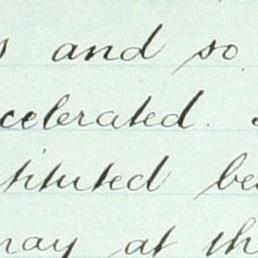 s and so
celerated.
tituted be
may at th